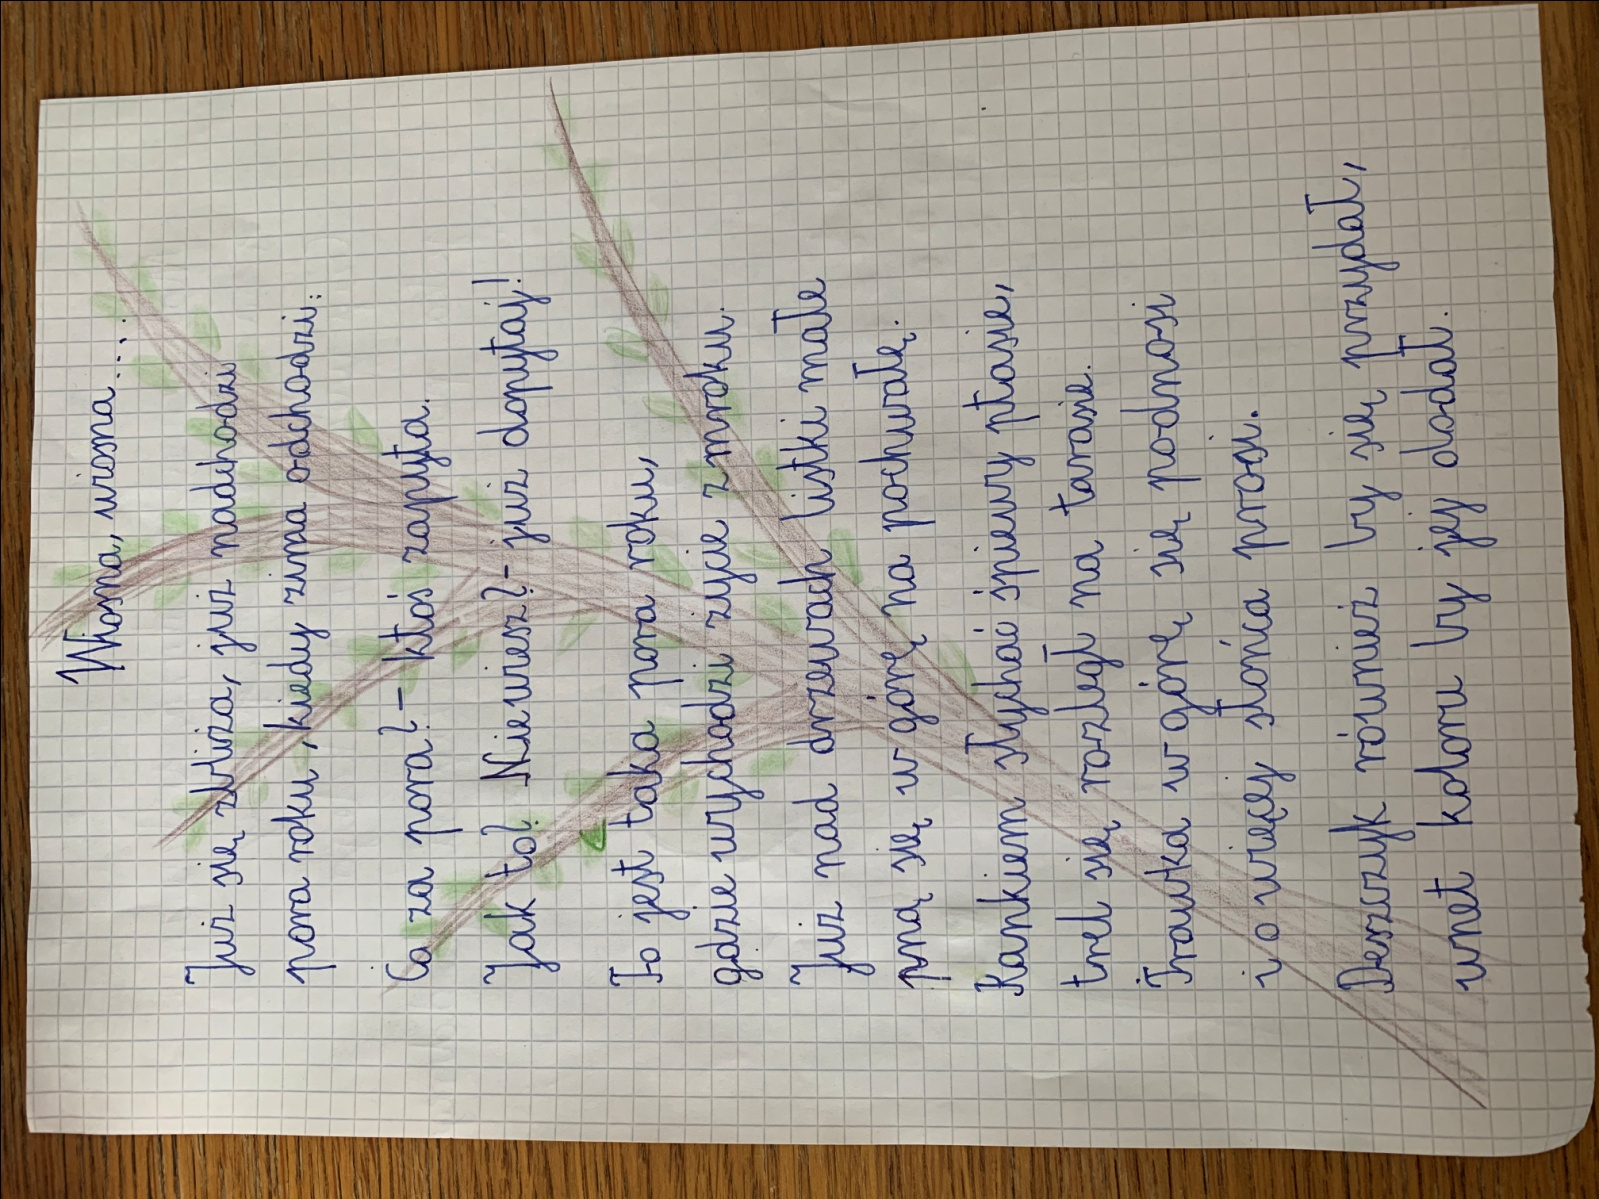 Wiosna, wiosna....
Już się zbliża, już nadchodzi
pora roku, kiedy zima odchodzi.
Co za pora? - ktoś zapyta.
Jak to? Nie wiesz? - już dopytaj!
To jest taka pora roku,
gdzie wychodzi życie z mroku.
Już nad drzewach listki małe
pną się w górę na pochwałę.
Rankiem słychać śpiewy ptasie,
trel się rozległ na tarasie.
Trawka w górę się podnosi
i o więcej słońca prosi.
Deszczyk również by się przydał,
wnet koloru by jej dodał.